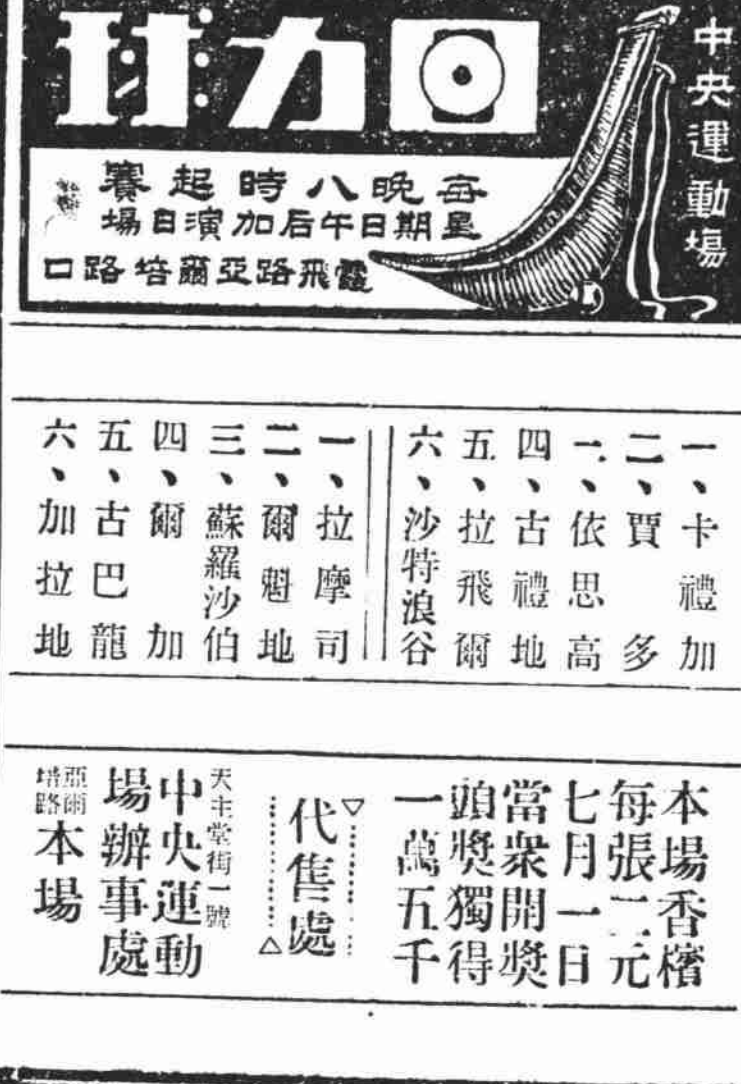 中央運動場
回力球
每晚八時起賽
星期日午后加演日場
霞飛路亞爾培路口
一、卡禮加
二、賈多
一、依思高
四、古禮地
五、拉飛爾
六、沙特浪谷
一、拉摩司
二、爾魁地
三、蘇羅沙伯
四、爾加
五、古巴龍
六、加拉地
本場香檳
每張二元
七月一日
當衆開獎
頭獎獨得
一萬五千
代售處
天主堂街一號
中央運動
場辦事處
亞爾培路
本場